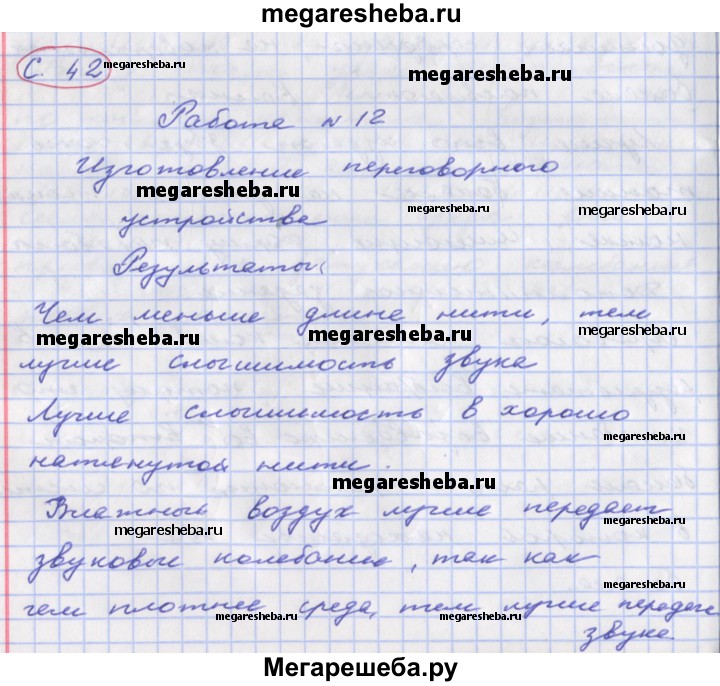 megaresheba.ru
С. 42
megaresheba.ru
megaresheba.ru
Работа №12
Изготовление переговорного
megaresheba.ru
megaresheba.ru
megaresheba.ru
устройства
Результаты:
Чем меньше длина нити, тем
megaresheba.ru
megaresheba.ru
megaresheba.ru
лучше слышимость звука
Лучше слышимость в хорошо
megaresheba.ru
натянутой нити.
megaresheba.ru
Влажный воздух лучше передает
megaresheba.ru
megaresheba.ru
звуковые колебание, так как
megaresheba.ru
чем плотнее среда, тем лучше передача
megaresheba.ru
звука.
Мегарешеба.ру